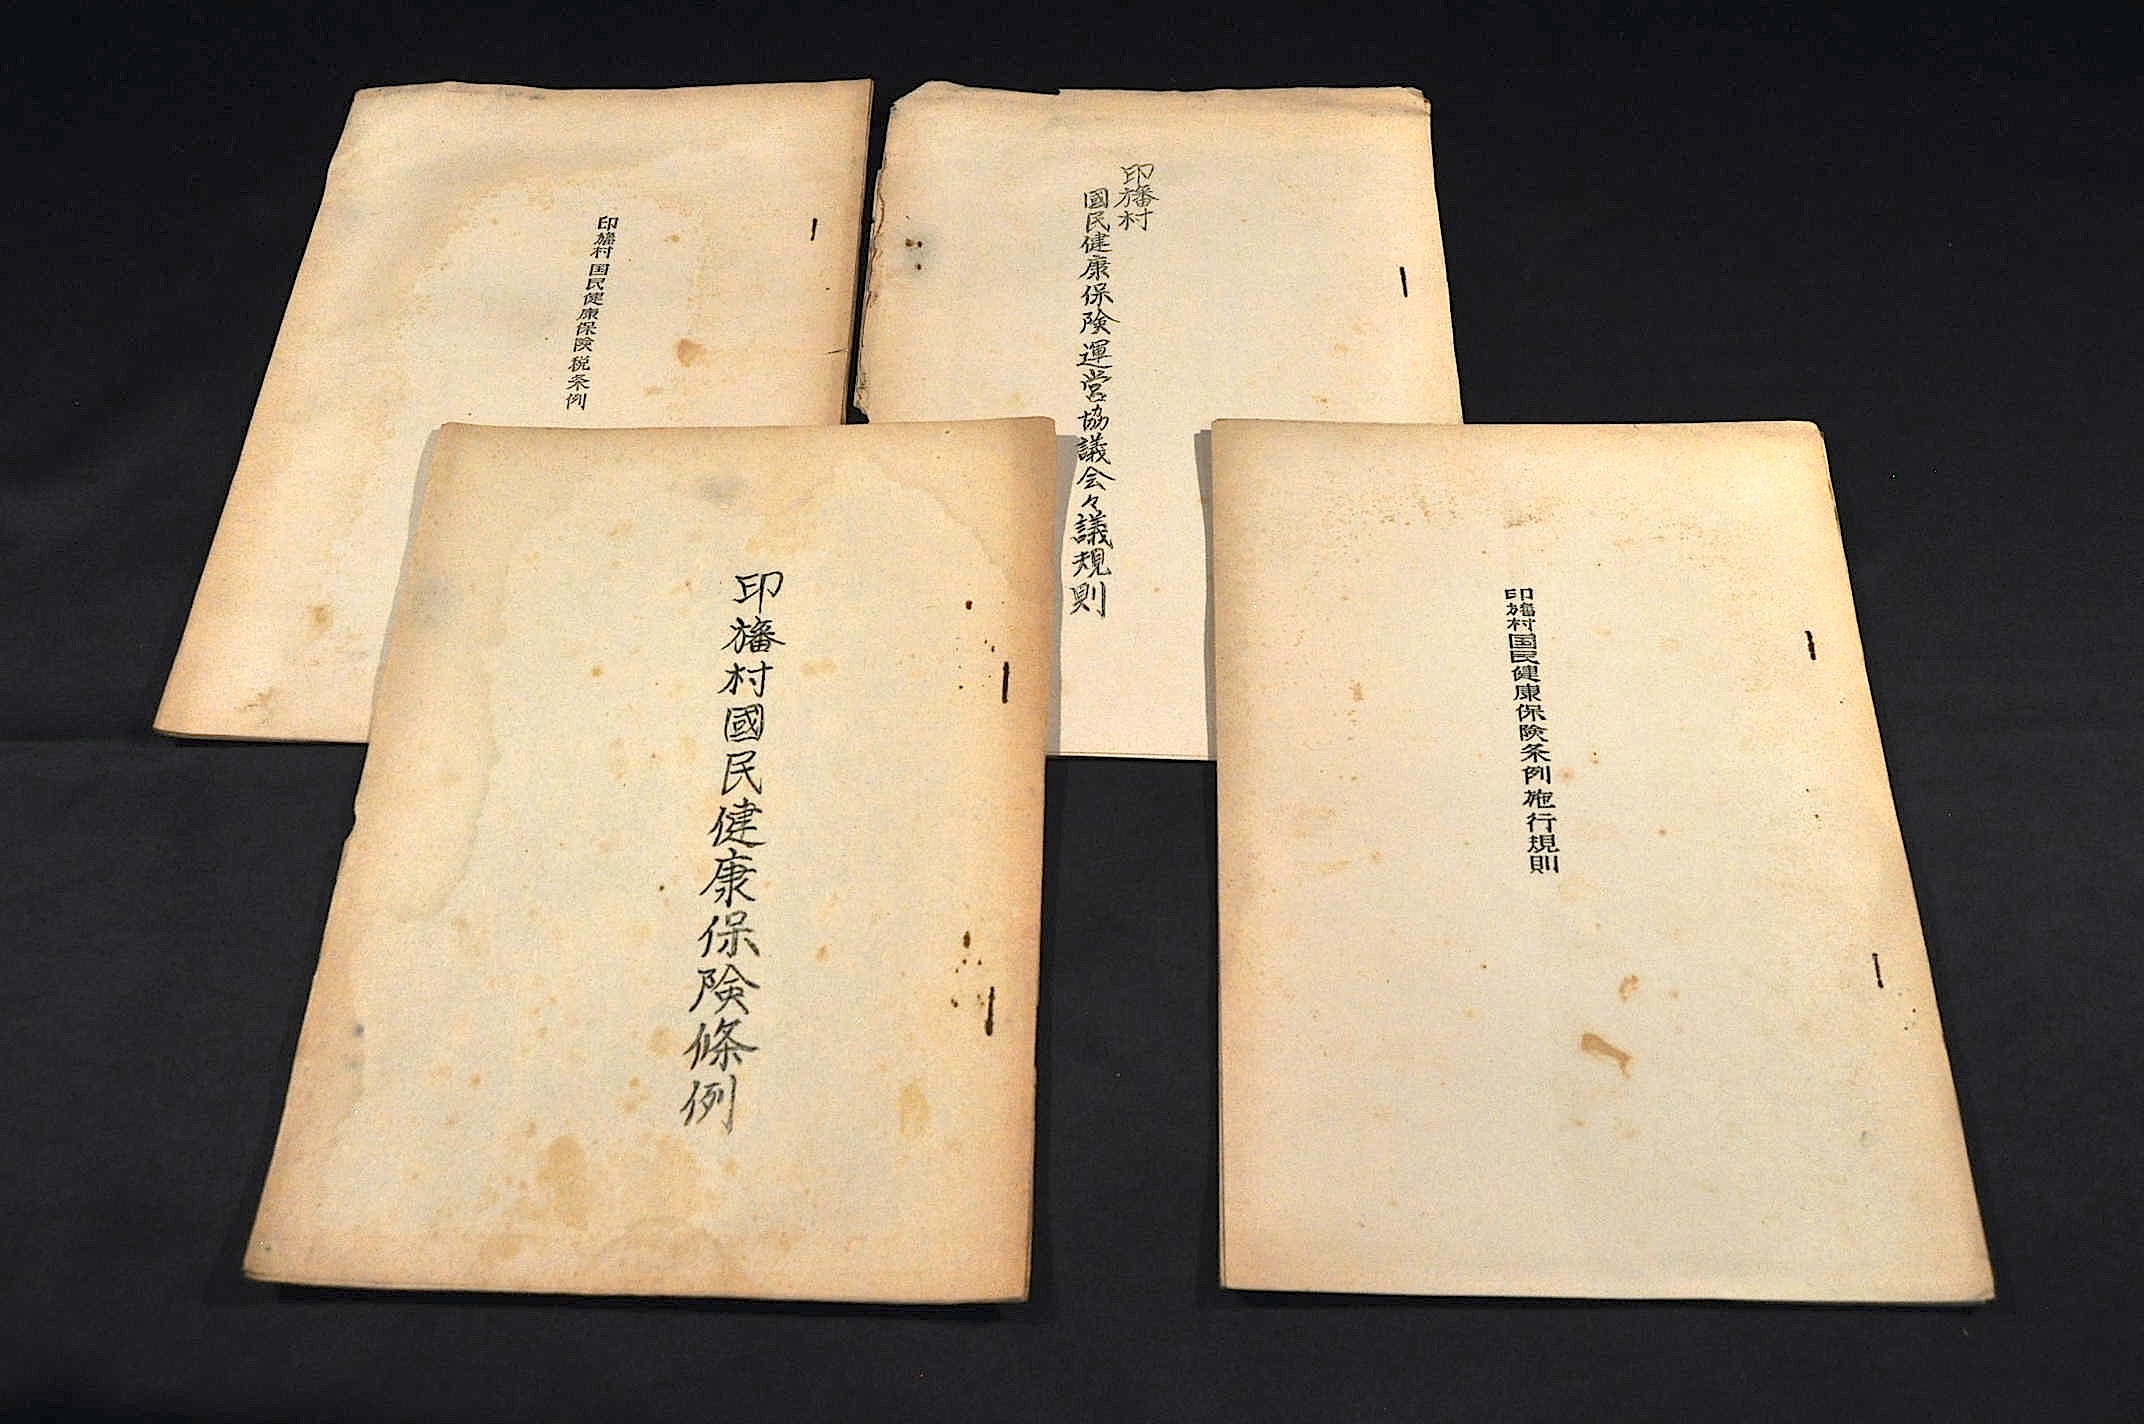 印旛村国民健康保険税条例
印旛村
國民健康保険運営協議会々議規則
印旛村國民健康保険條例
印旛村国民健康保険条例施行規則